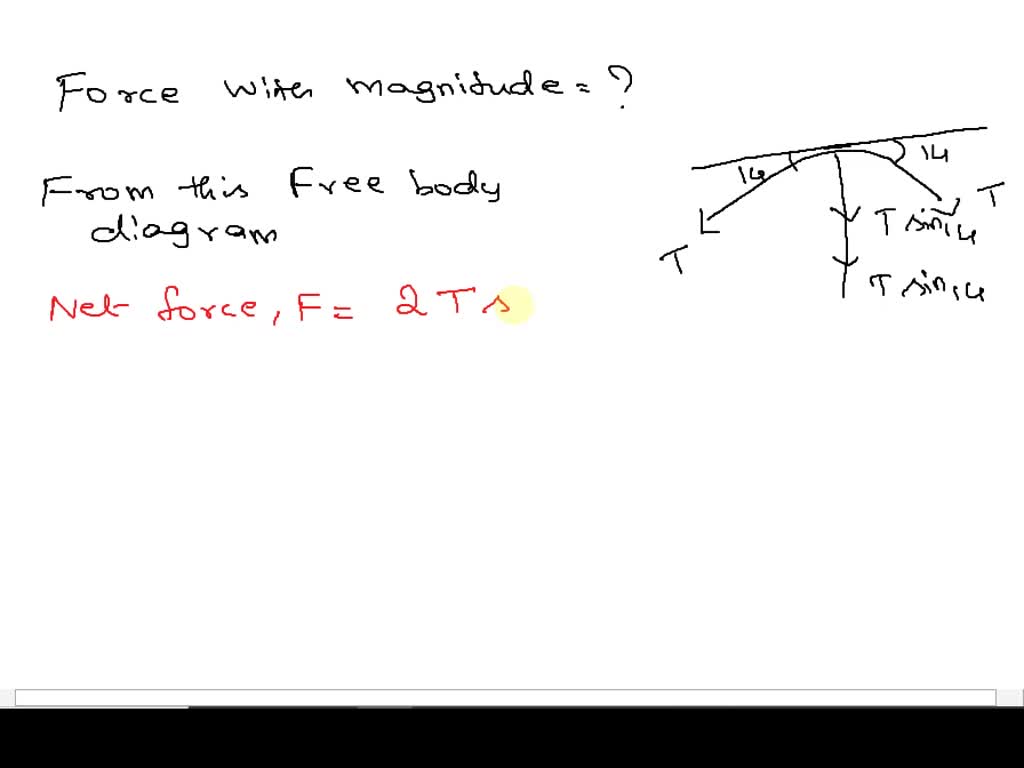 Force with magnitude = ?
From this Free body
diagram
Net force, F = 2 T s
14
14
T
T
T sin14
T sin14